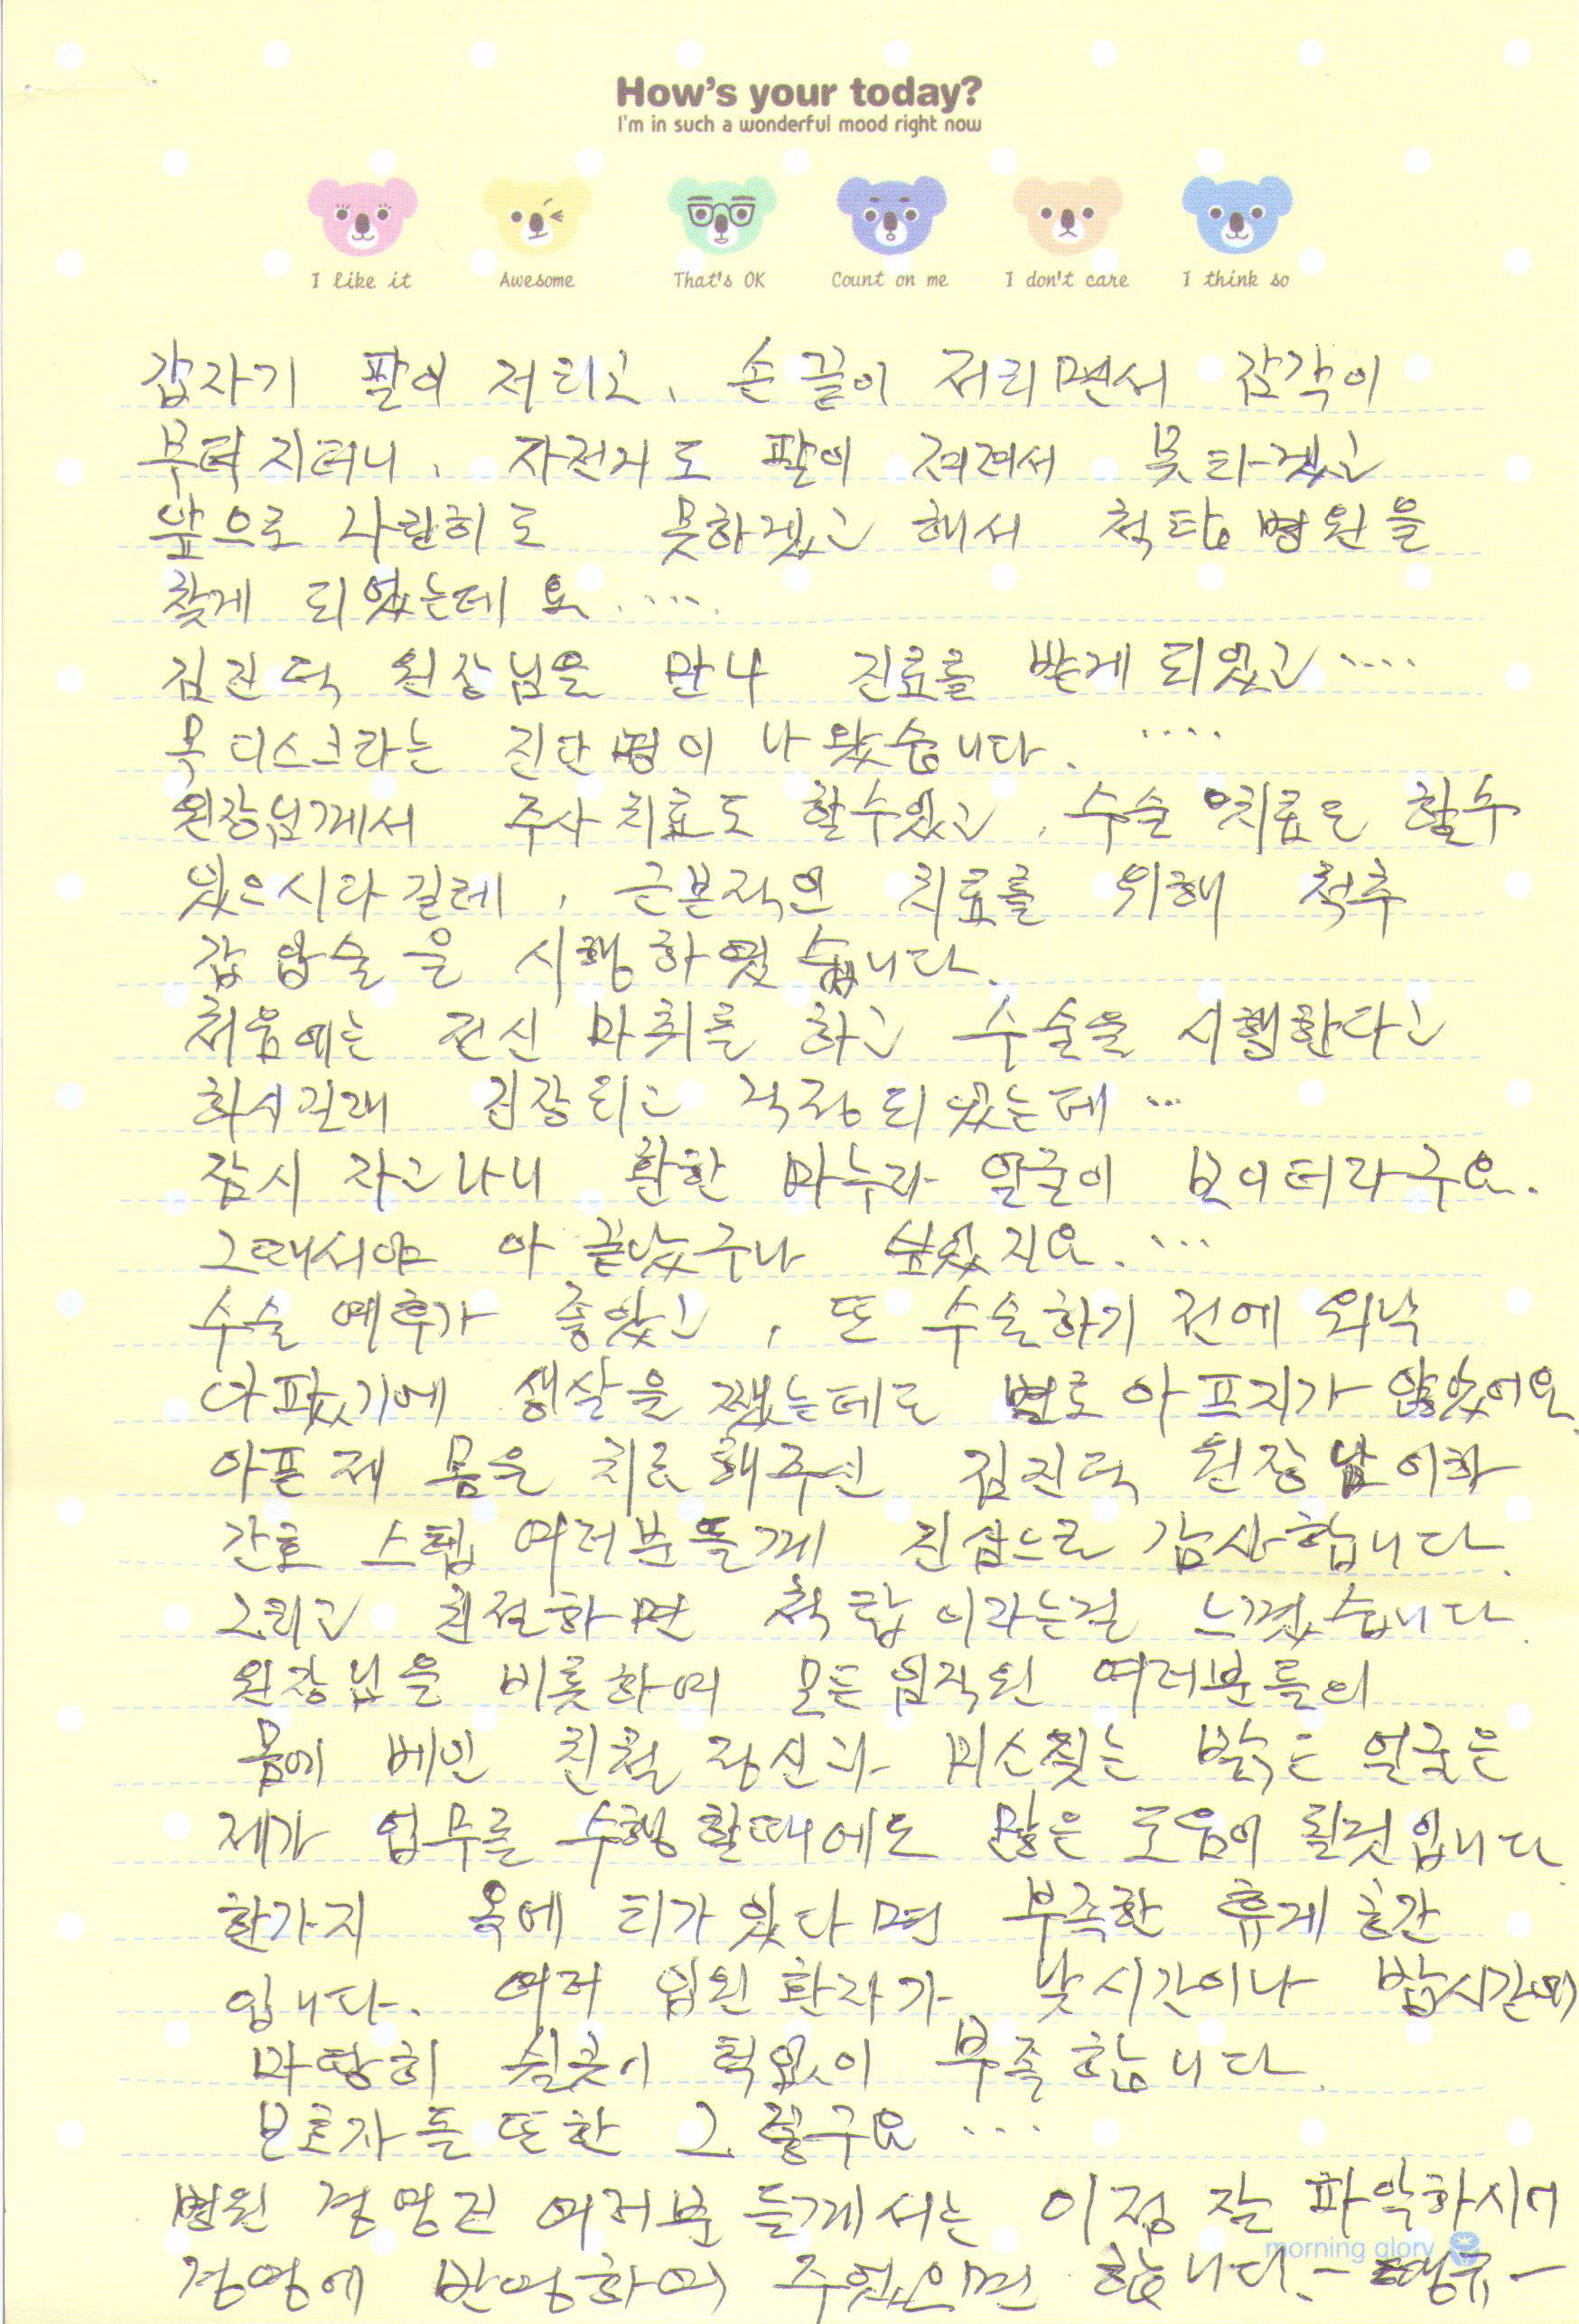 How's your today?
I'm in such a wonderful mood right now
I like it Awesome That's OK Count on me I don't care I think so
갑자기 팔이 저리고, 손끝이 저리면서 감각이
무뎌지더니, 자전거도 팔이 저려서 못타겠고
앞으로 나란히도 못하겠고 해서 척탑병원을
찾게 되었는데요.....
김진덕 원장님을 만나 진료를 받게 되었고....
목디스크라는 진단명이 나왔습니다. ....
원장님께서 주사치료도 할수있고, 수술 치료도 할수
있으시다길레, 근본적인 치료를 위해 척추
감압술을 시행하였습니다.
처음에는 전신 마취를 하고 수술을 시행한다고
하시길래 긴장되고 걱정되었는데...
잠시 자고나니 환한 마누라 얼굴이 보이더라구요.
그때서야 아 끝났구나 싶었지요. ...
수술 예후가 좋았고, 또 수술하기 전에 워낙
아팠기에 생살을 쨌는데도 별로 아프지가 않았어요.
아픈 제 몸을 치료해주신 김진덕 원장님 이하
간호 스텝 여러분들께 진심으로 감사합니다.
그리고 친절하면 척탑이라는걸 느꼈습니다.
원장님을 비롯하여 모든 임직원 여러분들의
몸에 베인 친절 정신과 미소짓는 밝은 얼굴은
제가 업무를 수행할때에도 많은 도움이 될것입니다.
한가지 옥에 티가 있다면 부족한 휴게 공간
입니다. 여러 입원환자가 낮시간이나 밤시간에
마땅히 쉴곳이 턱없이 부족합니다.
보호자들 또한 그렇구요 ...
병원 경영진 여러분들께서는 이점 잘 파악하시어
morning glory
경영에 반영하여 주었으면 합니다.